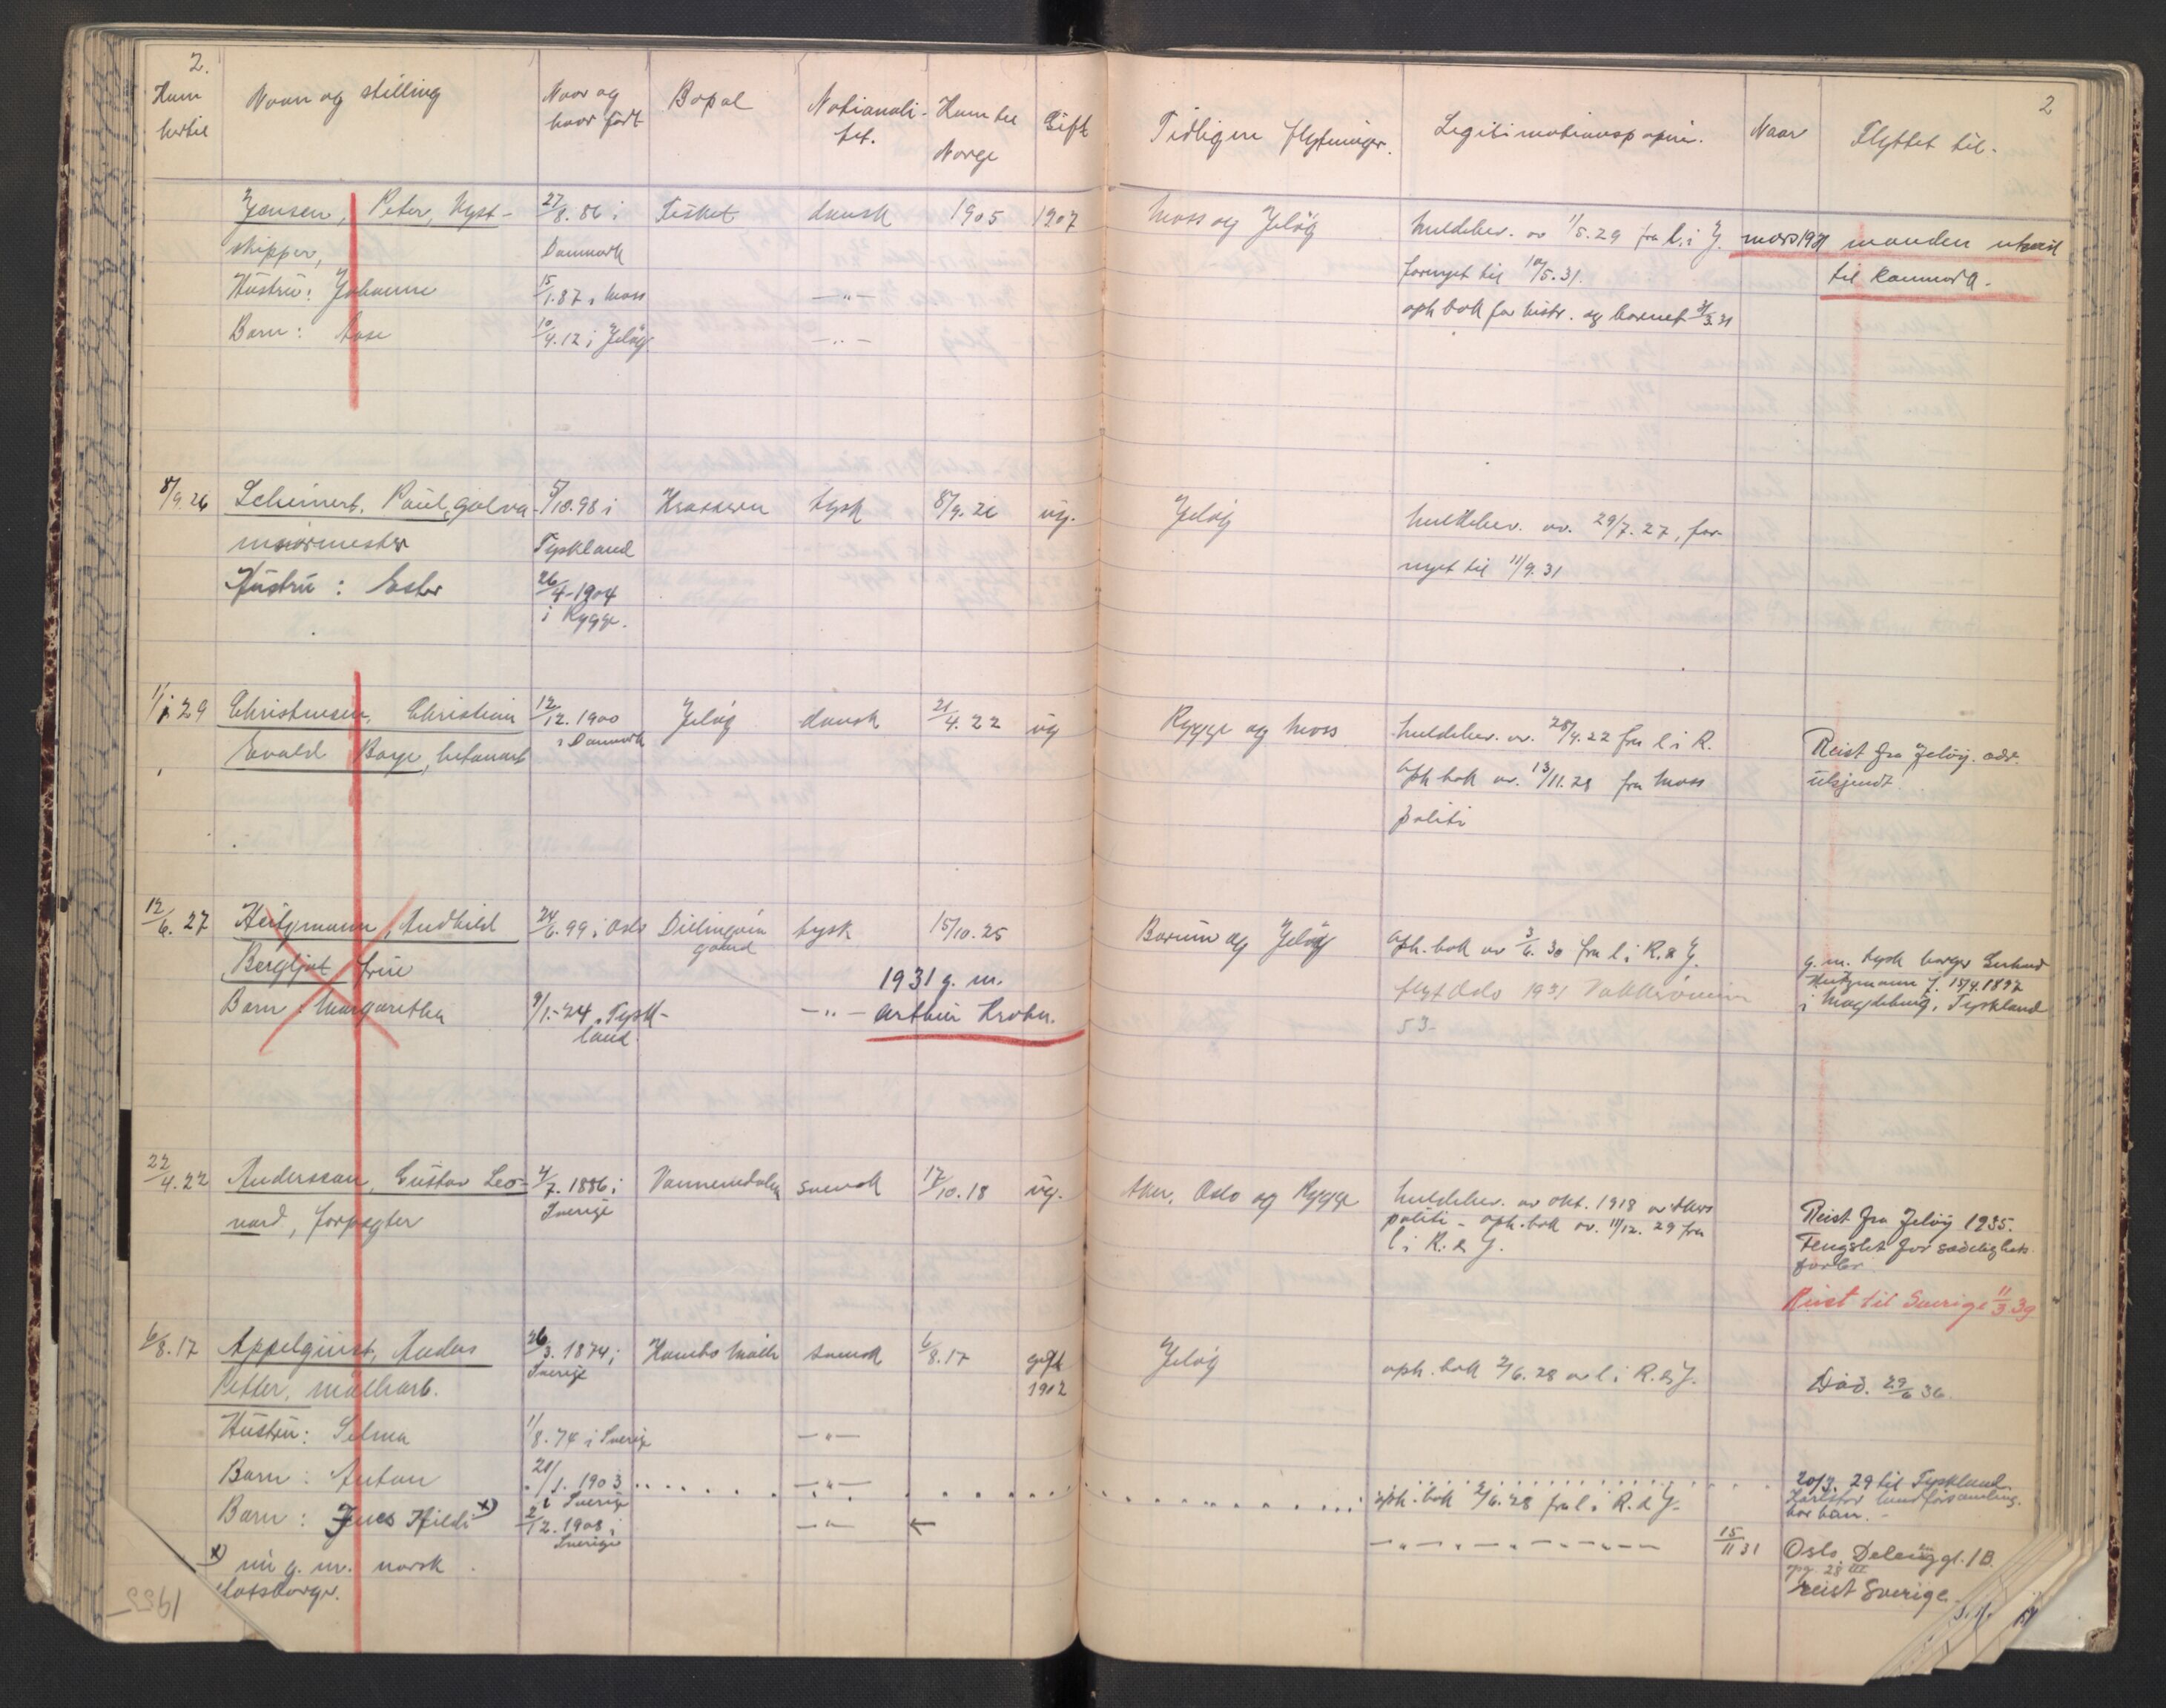 2.
Kom hertil | Navn og stilling | Naar og hvor født | Bopæl | Nationalitet. | Kom til Norge | Gift | Tidligere flytninger. | Legitimationspapir. | Naar | Flyttet til. | 2
Jensen, Peter, | 27/8.86 i | dansk | 1905 | 1907 | Moss og Jeløy | meldebev. av 1/5.29 fra l. i J. | mars 1931 | manden utvist
skipper, | Danmark | fornyet til 10/5.31. | til Danmark.
Hustru: Johanne | 15/1.87 i Moss | —"— | oph. bok for hustr. og barnet 31/3.31
Barn: Aase | 10/9.12 i Jeløy | —"—
8/9.26 | Scheinert, Paul, galva- | 5/10.98 i | tysk | 8/9.26 | ug. | Jeløy | meldebev. av. 29/7.27, for-
Tyskland | nyet til 11/9.31
Hustru: Ester | 26/4-1904
i Rygge.
29 | Christensen, Christian | 12/12.1900 | Jeløy | dansk | 21/4.22 | ug | Rygge og Moss | meldebev. av. 28/4.22 fra l i R. | Reist fra Jeløy. adr.
Evald Borge, betonarb | i Danmark | oph bok av. 13/11.28 fra Moss | ukjendt.
politi
12/6.27 | Heitzmann, Audhild | 24/6.99 i Oslo | Dillingøen | tysk | 15/10.25 | Bærum og Jeløy | oph. bok av 3/6.30 fra l. i R. & J. | g. m. tysk borger
Bergljot frue | gaard | 1931 g. m. | flyt Oslo 1931 | Heitzmann f. 15/4.1897
Barn: Margaretha | 9/1.-24 i Tysk- | —"— | Arthur Krohn. | 53- | i Magdeburg, Tyskland
land.
22/4.22 | Andersson, Gustav Leo- | 4/7.1886 i | Vannemdalen | svensk | 17/10.18 | ug. | Aker, Oslo og Rygge | meldebev. av okt. 1918 av Akers | Reist fra Jeløy 1935.
nard, forpagter | Sverige | politi - oph. bok av. 11/12.29 fra | Fengslet for sædelighets
l i R. & J. | forbr.
Reist til Sverige 11/3.39
6/8.17 | Appelquist, Anders | 26/3.1874 i | Kambo Mølle | svensk | 6/8.17 | gift | Jeløy | oph. bok 2/6.28 av l. i R. & J. | Død. 29/6 36.
Petter, møllearb. | Sverige | 1902
Hustru: Selma | 11/8.74 i Sverige | —"—
Barn: Anton | 21/1.1903 | —"— | oph. bok 2/6.28 fra l. i R. & J. | 20/7.29 til Tyskland.
i Sverige
Barn: Jnes Hildi x) | 2/12.1908 i | —"— | ← | —"—"—"— | 15/11 31 | Oslo. Delenggt. 1B.
Sverige | opg. 28 III
x) nu g. m. norsk | reist Sverige.
statsborger.
1955